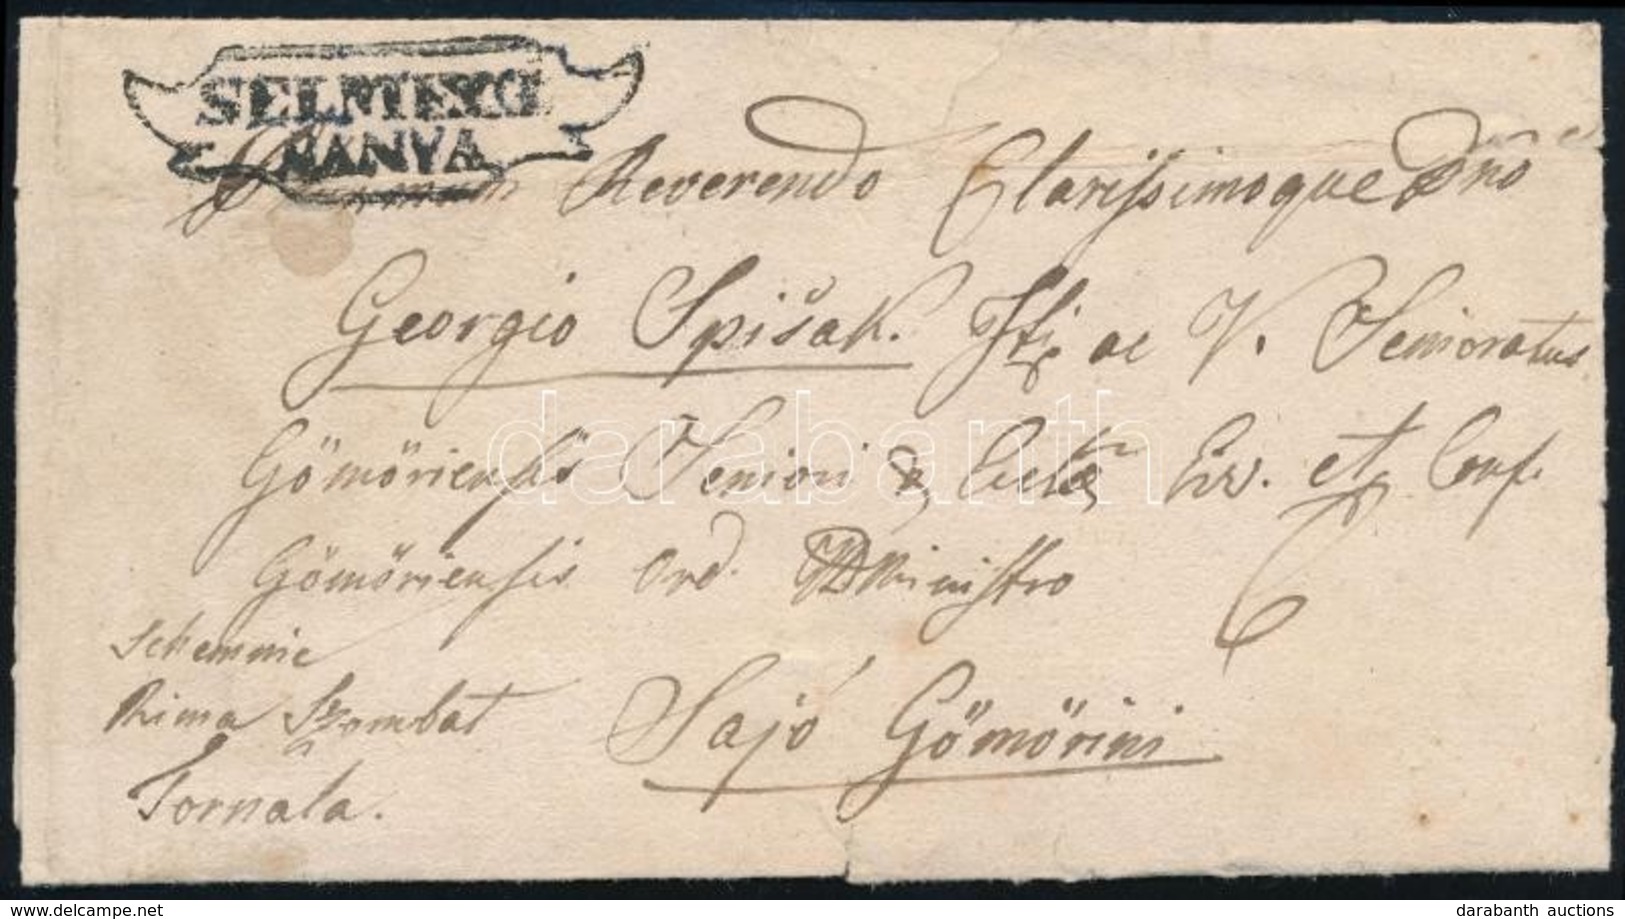 SELMECZ
BANYA
Reverendo Clarissimoque Dno
Georgio Spišak. ac V. Senioratus
Gömöriensis Seniori & Eccl. Ev. et Conf.
Gömöriensis Ord. Ministro
Schemnic
Rima Szombat
Tornala.
Sajó Gömörini
darabanth
delcampe.net
darabanth auctions